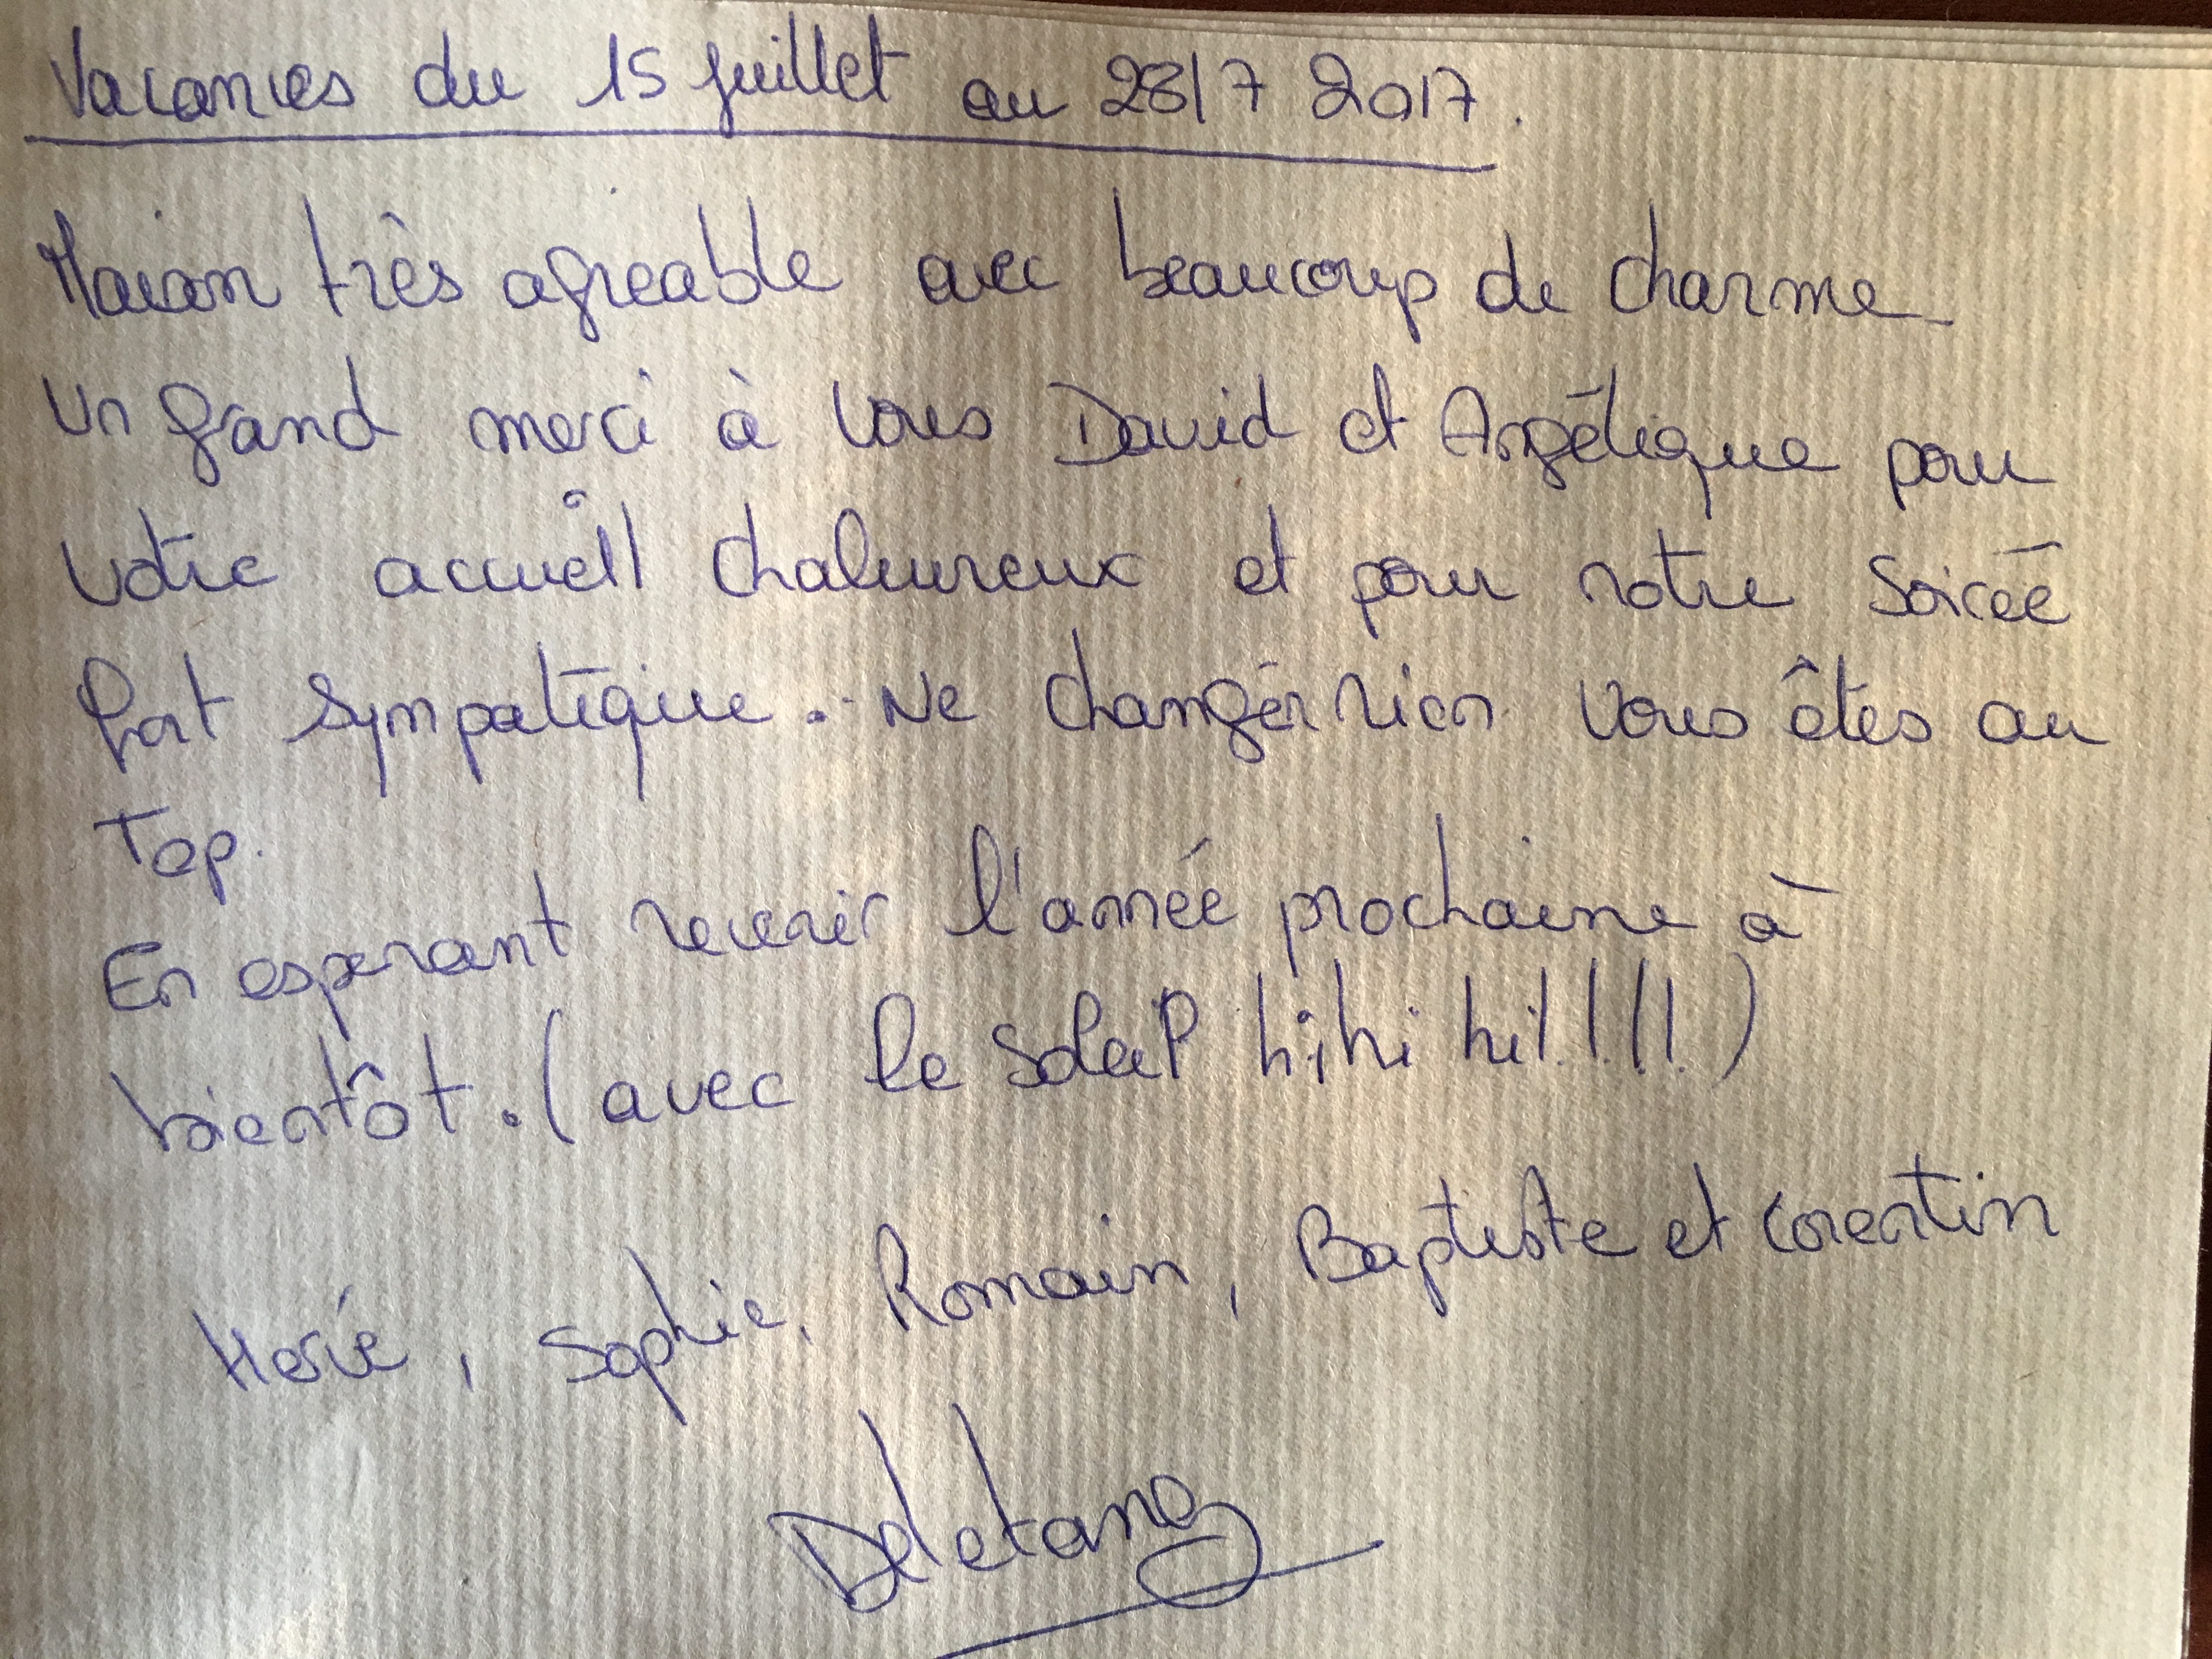 Vacances du 15 juillet au 28/7 2017.
Maison très agreable avec beaucoup de charme.
Un grand merci à vous David et Angélique pour
votre accueil chaleureux et pour notre soirée
fort sympatique. Ne changér rien vous êtes au
Top.
En esperant revenir l'année prochaine à
bientôt. (avec le soleil hi hi hi!!!!!)
Hervé, Sophie, Romain, Baptiste et Corentin
Deletang